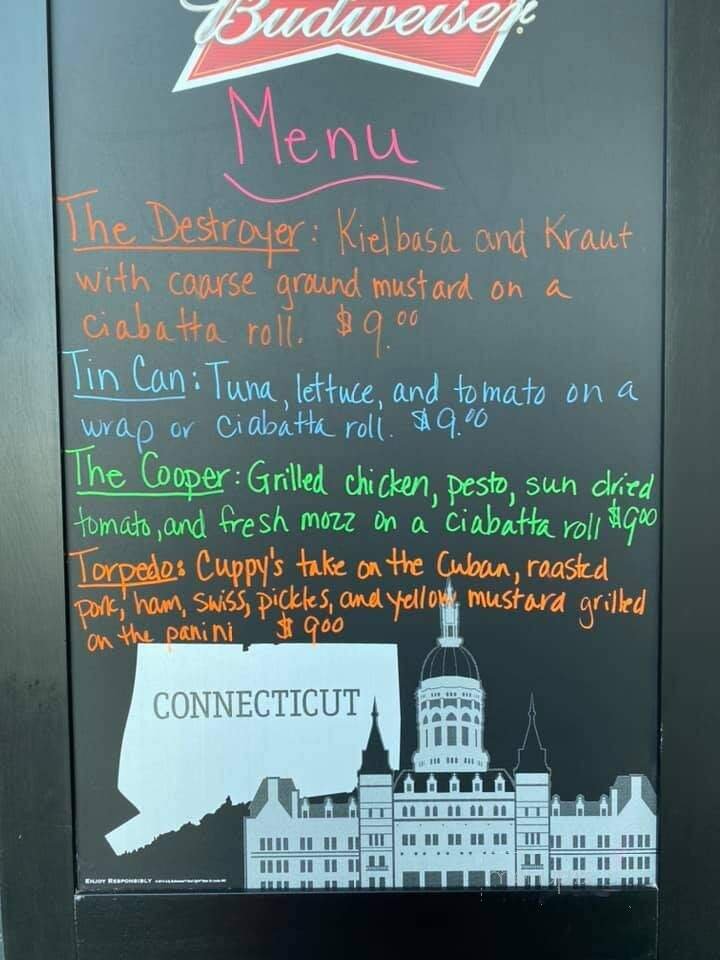 Budweiser
Menu
The Destroyer: Kielbasa and Kraut
with coarse ground mustard on a
ciabatta roll. $9.00
Tin Can: Tuna, lettuce, and tomato on a
wrap or ciabatta roll. $9.00
The Cooper: Grilled chicken, pesto, sun dried
tomato, and fresh mozz on a ciabatta roll $900
Torpedo: Cuppy's take on the Cuban, roasted
pork, ham, swiss, pickles, and yellow mustard grilled
on the panini $900
CONNECTICUT
ENJOY RESPONSIBLY